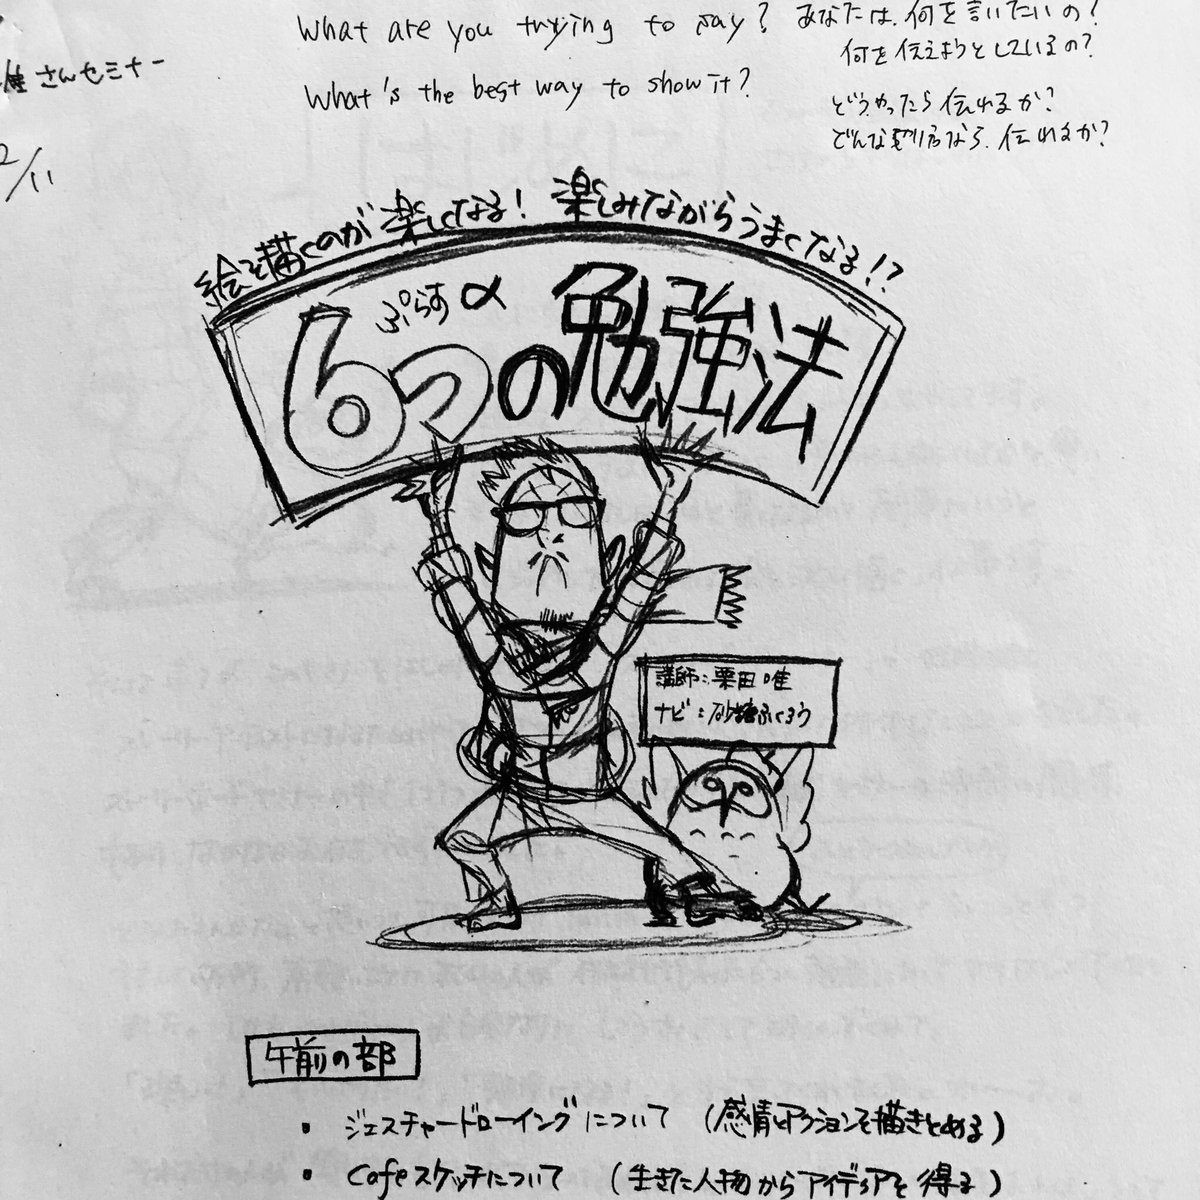 What are you trying to say? あなたは、何を言いたいの?
何を伝えようとしているの?
What's the best way to show it?
どうやったら伝わるか?
どんな
なら、伝わるか?
さんセミナー
2/11
絵を描くのが楽しくなる! 楽しみながらうまくなる!?
ぷらすα
6つの勉強法
講師:栗田 唯
ナビ:砂糖ふくろう
午前の部
・ジェスチャードローイングについて (感情とアクションを描きとめる)
・Cafeスケッチについて (生きた人物からアイディアを得る)